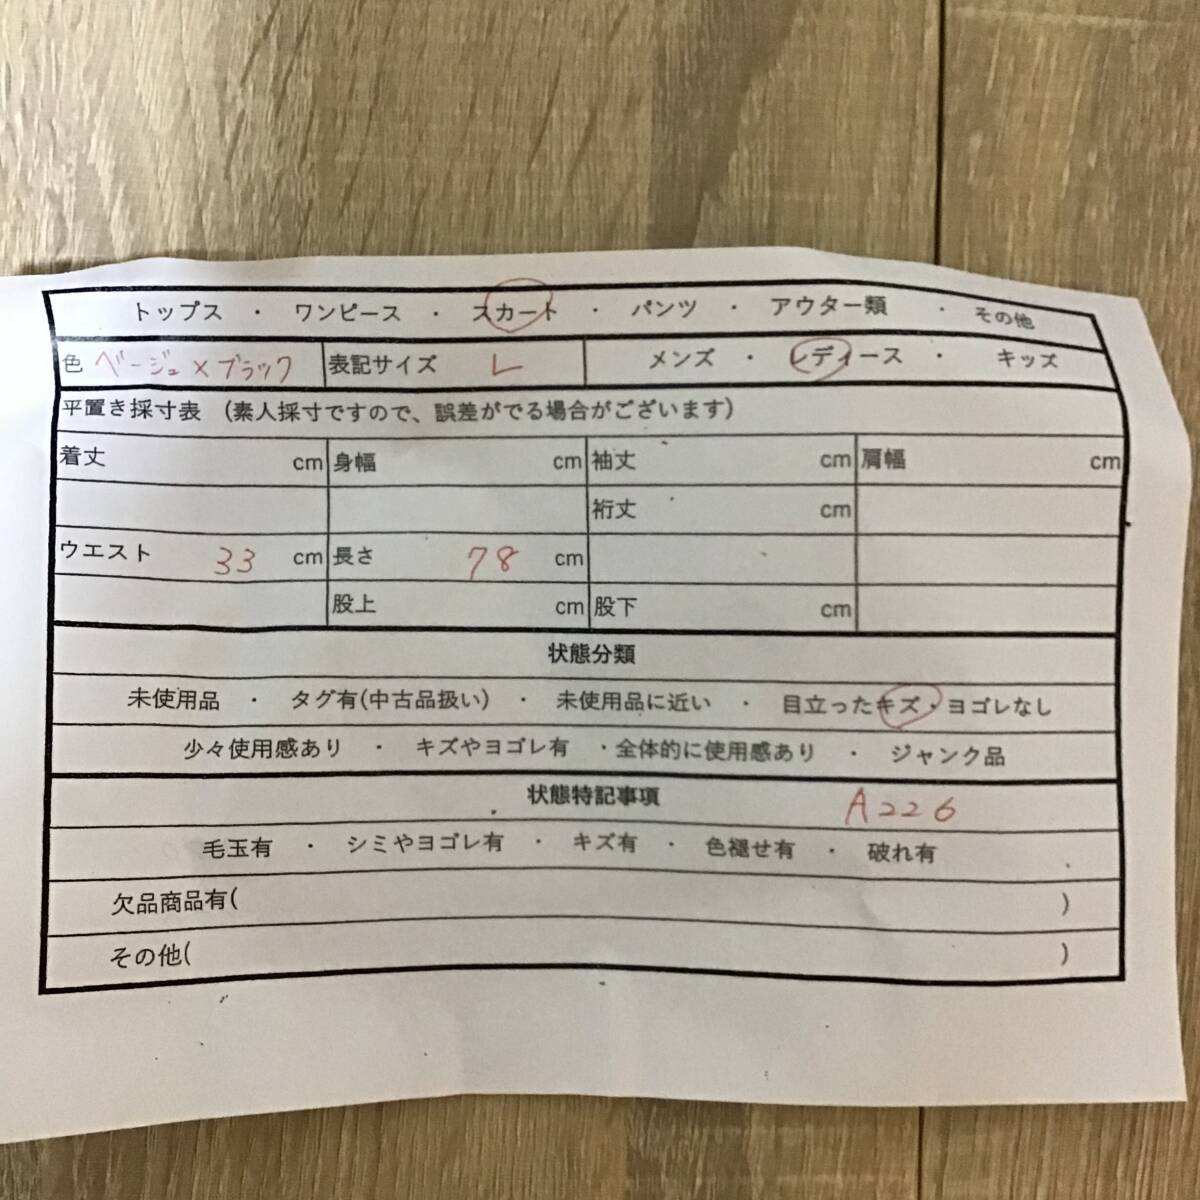 トップス ・ ワンピース ・ スカート ・ パンツ ・ アウター類 ・ その他
色 ベージュ×ブラック 表記サイズ L メンズ ・ レディース ・ キッズ
平置き採寸表 (素人採寸ですので、誤差がでる場合がございます)
着丈 cm 身幅 cm 袖丈 cm 肩幅 cm
裄丈 cm
ウエスト 33 cm 長さ 78 cm
股上 cm 股下 cm
状態分類
未使用品 ・ タグ有(中古品扱い) ・ 未使用品に近い ・ 目立ったキズ・ヨゴレなし
少々使用感あり ・ キズやヨゴレ有 ・全体的に使用感あり ・ ジャンク品
状態特記事項 A226
毛玉有 ・ シミやヨゴレ有 ・ キズ有 ・ 色褪せ有 ・ 破れ有
欠品商品有( )
その他( )